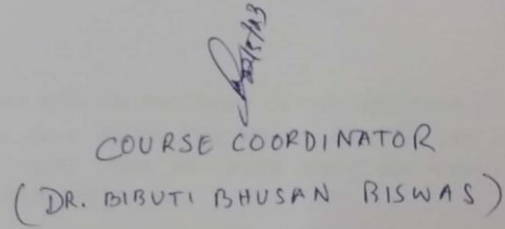 COURSE COORDINATOR
(DR. BIBUTI BHUSAN BISWAS)